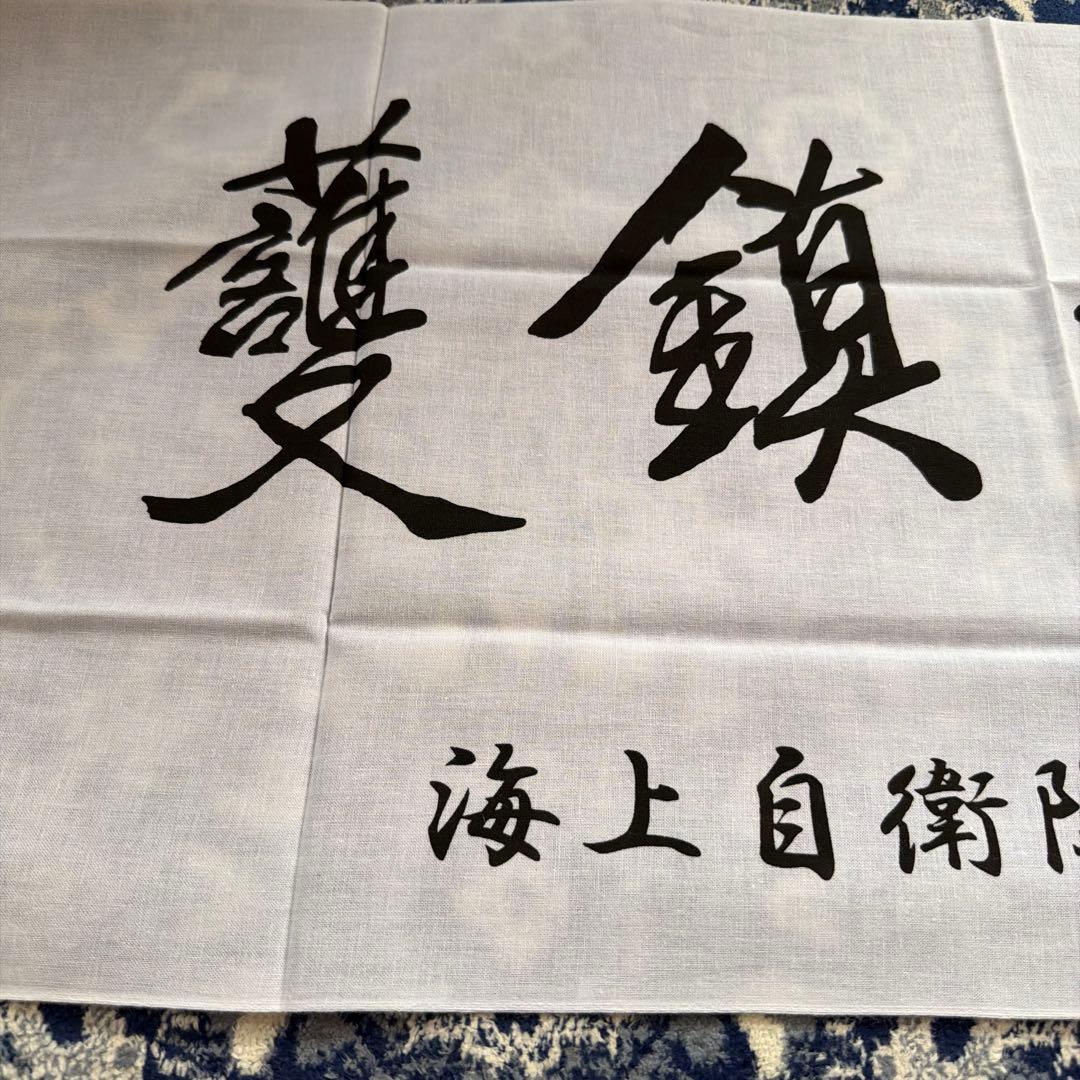 鎮護
海上自衛隊